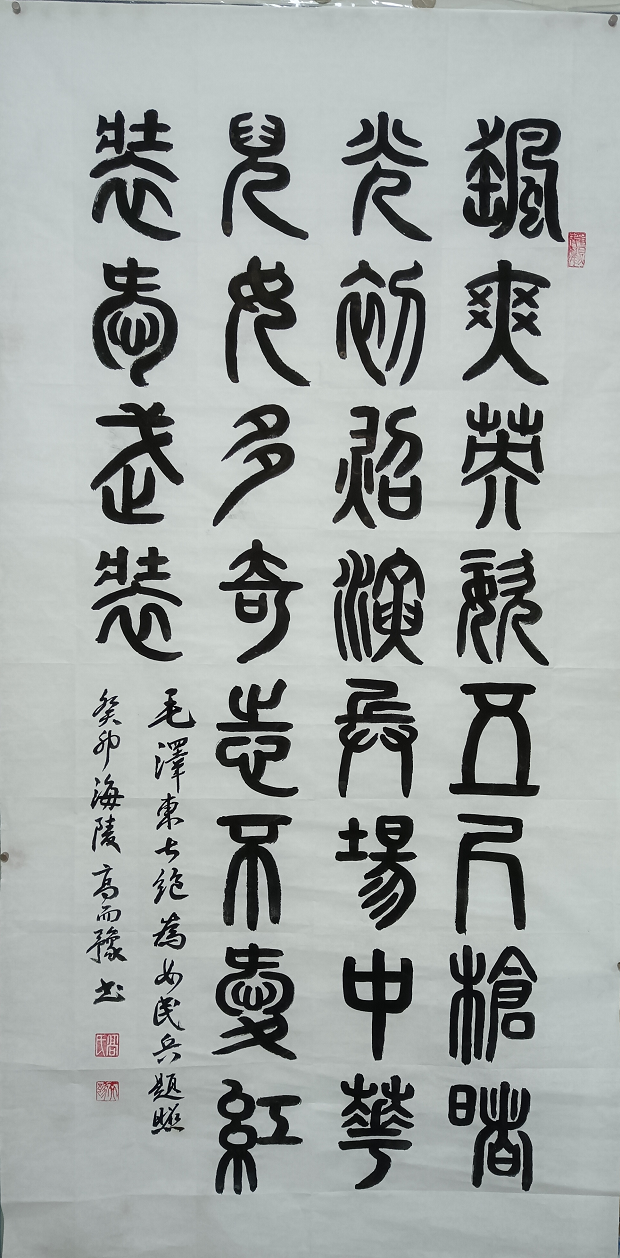 颯爽英姿五尺槍暏
光初炤演兵場中華
兒女多奇志不愛紅
裝愛武裝
毛澤東七絶為女民兵題照
癸卯海陵高而豫书